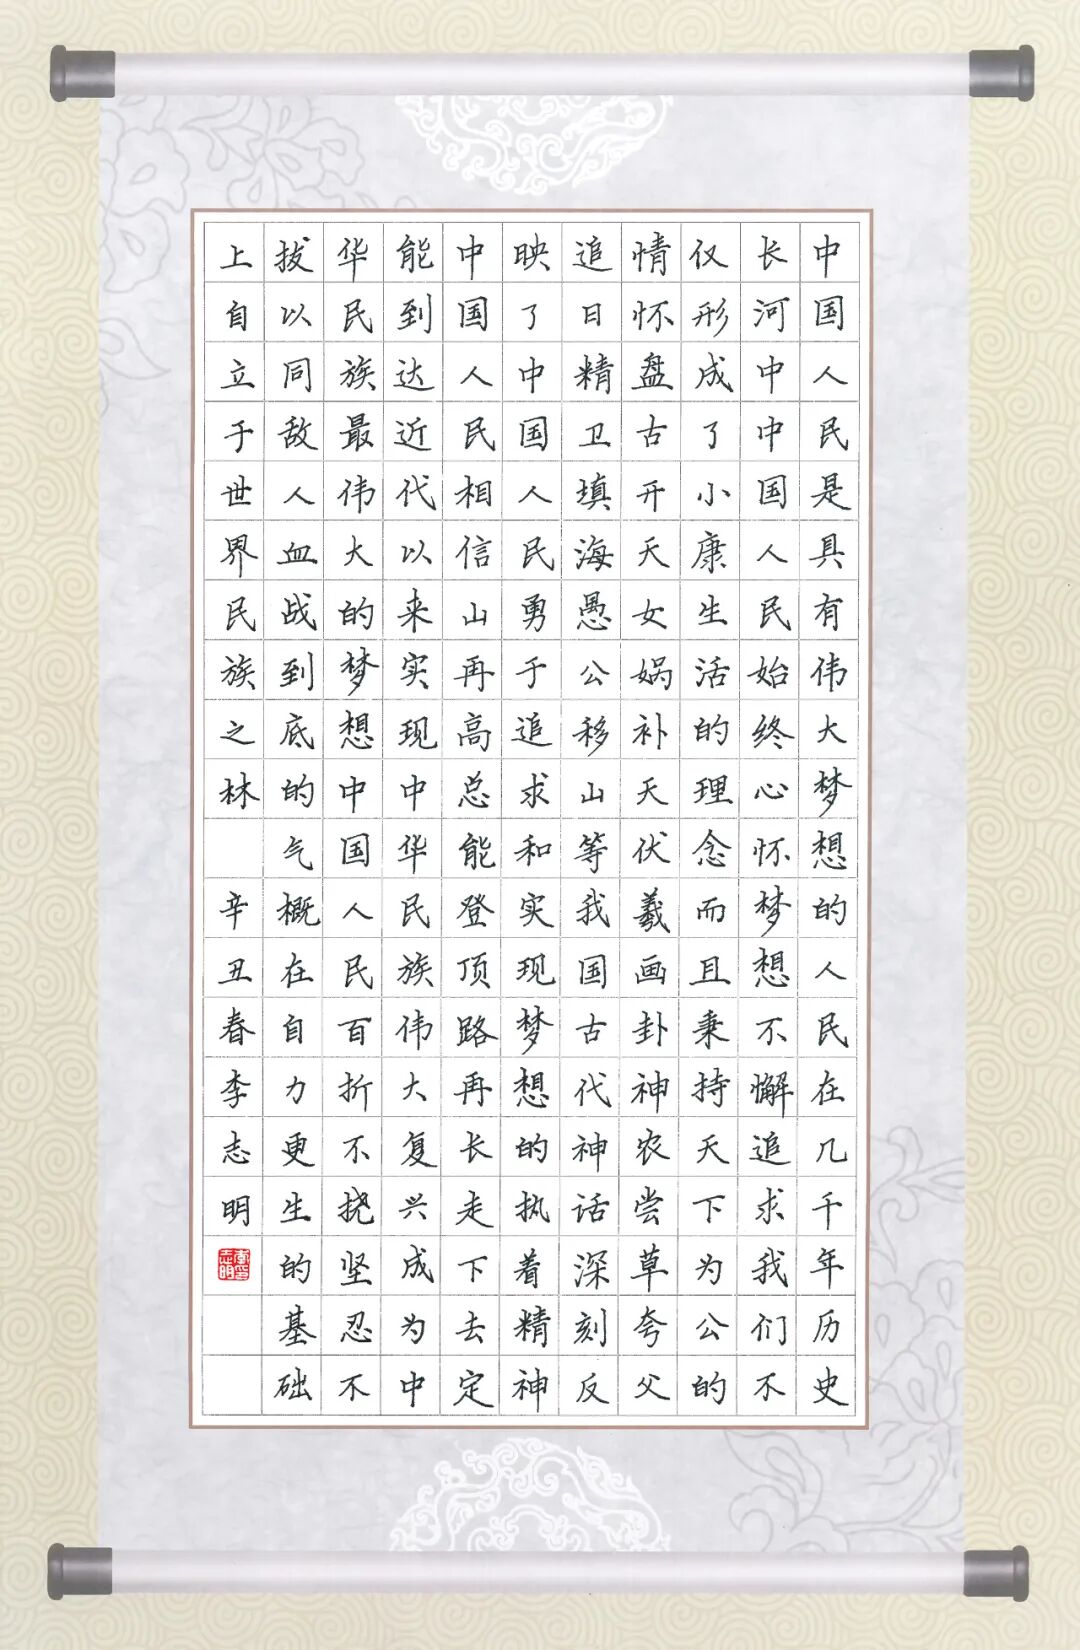 中国人民是具有伟大梦想的人民在几千年历史
长河中中国人民始终心怀梦想不懈追求我们不
仅形成了小康生活的理念而且秉持天下为公的
情怀盘古开天女娲补天伏羲画卦神农尝草夸父
追日精卫填海愚公移山等我国古代神话深刻反
映了中国人民勇于追求和实现梦想的执着精神
中国人民相信山再高总能登顶路再长走下去定
能到达近代以来实现中华民族伟大复兴成为中
华民族最伟大的梦想中国人民百折不挠坚忍不
拔以同敌人血战到底的气概在自力更生的基础
上自立于世界民族之林 辛丑春李志明
李印志明